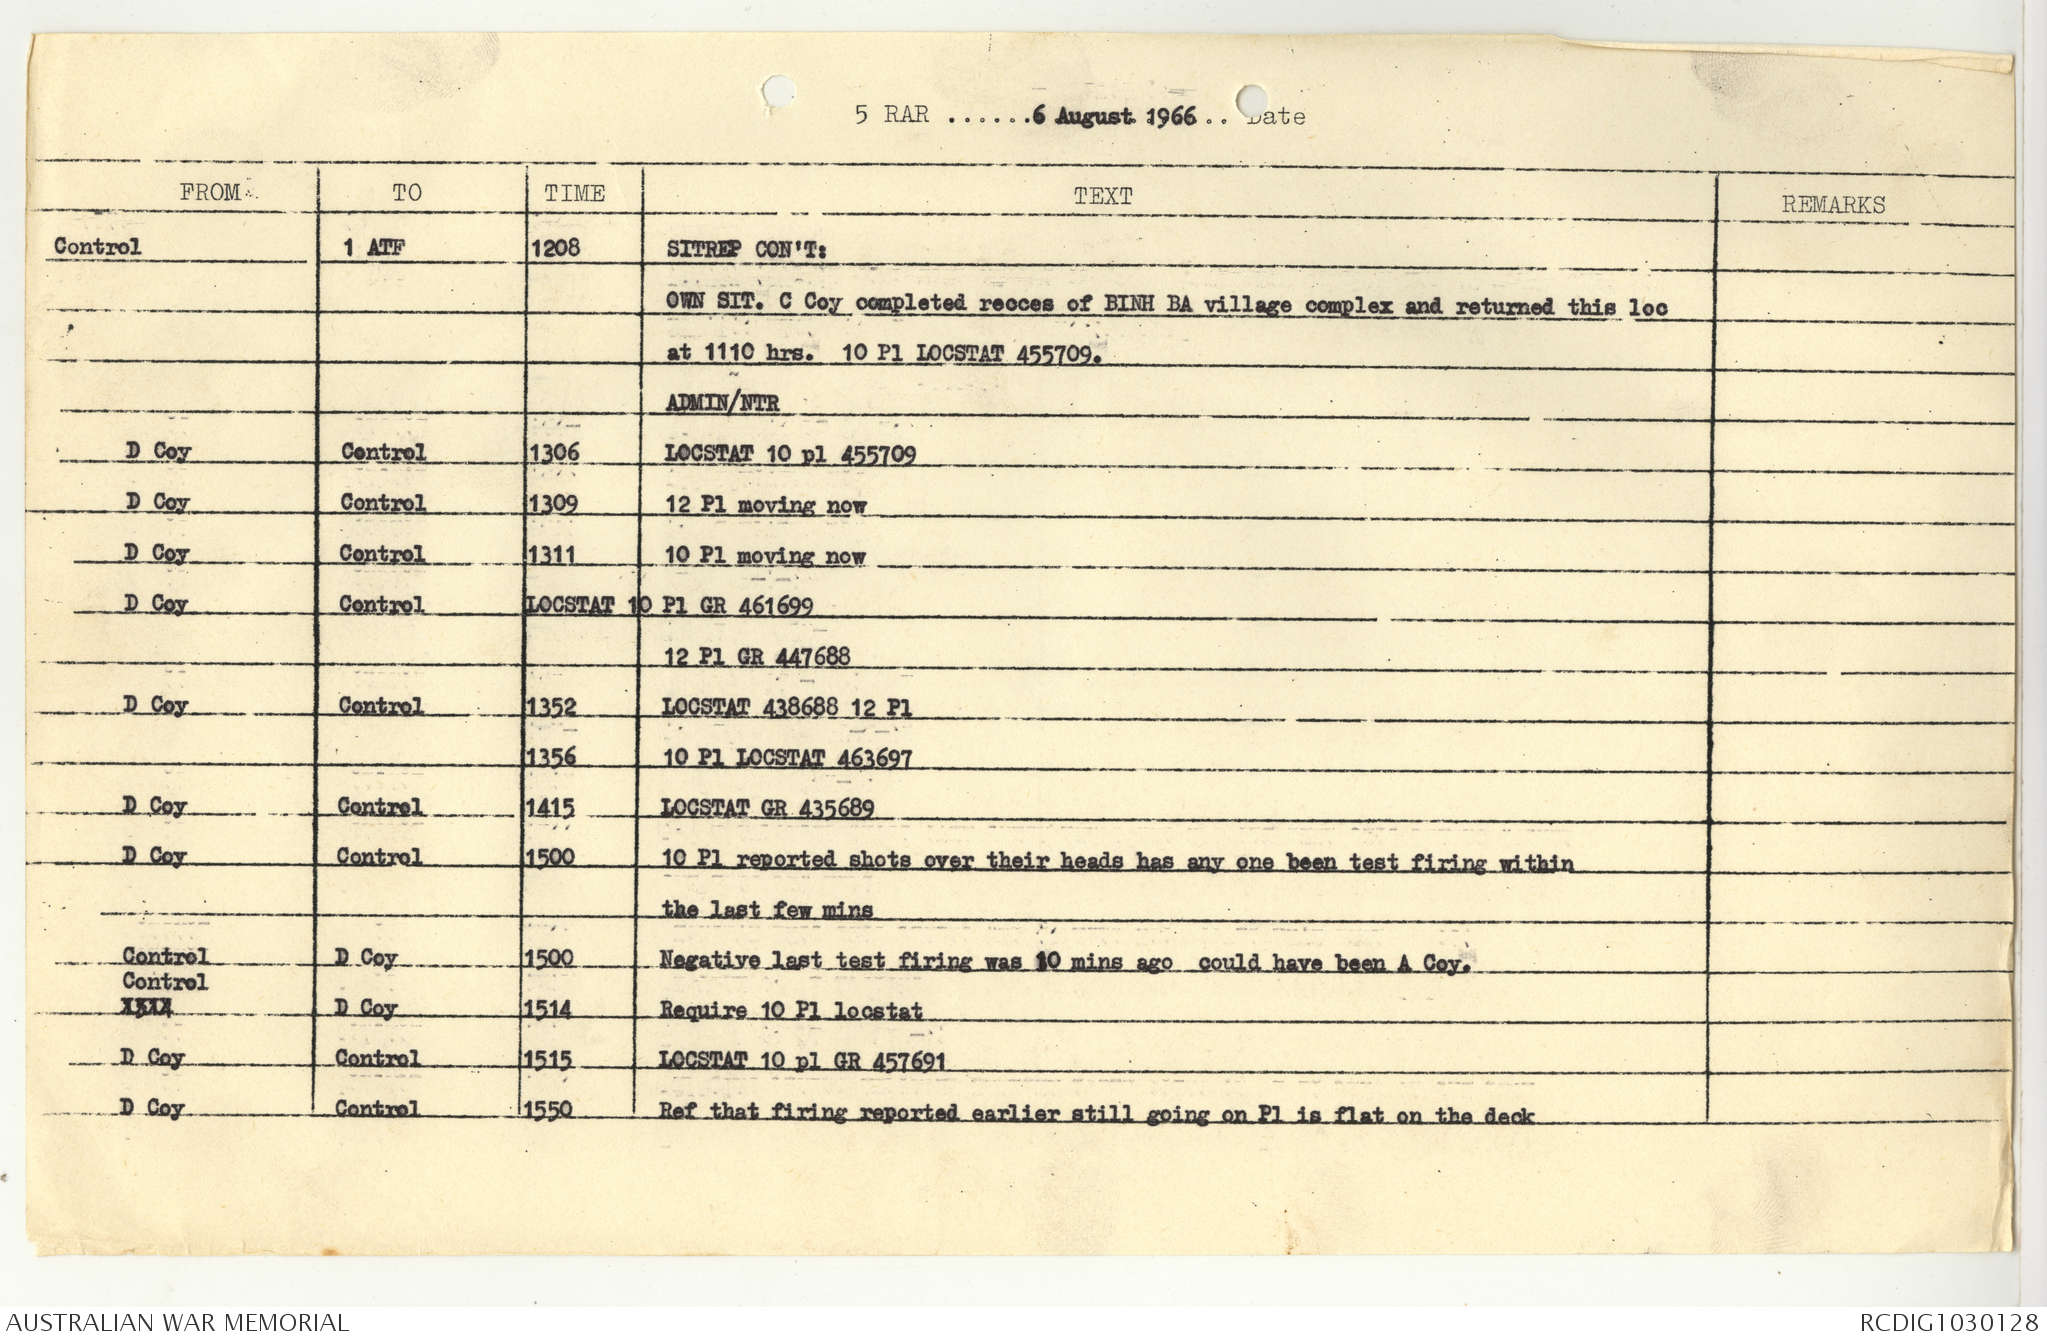 5 RAR ......6 August 1966.. Date
FROM TO TIME TEXT REMARKS
Control 1 ATF 1208 SITREP CON'T:
OWN SIT. C Coy completed recces of BINH BA village complex and returned this loc
at 1110 hrs. 10 Pl LOCSTAT 455709.
ADMIN/NTR
D Coy Control 1306 LOCSTAT 10 pl 455709
D Coy Control 1309 12 Pl moving now
D Coy Control 1311 10 Pl moving now
D Coy Control LOCSTAT 10 Pl GR 461699
12 Pl GR 447688
D Coy Control 1352 LOCSTAT 438688 12 Pl
1356 10 Pl LOCSTAT 463697
D Coy Control 1415 LOCSTAT GR 435689
D Coy Control 1500 10 Pl reported shots over their heads has any one been test firing within
the last few mins
Control D Coy 1500 Negative last test firing was 10 mins ago could have been A Coy.
Control
D Coy 1514 Require 10 Pl locstat
D Coy Control 1515 LOCSTAT 10 pl GR 457691
D Coy Control 1550 Ref that firing reported earlier still going on Pl is flat on the deck
AUSTRALIAN WAR MEMORIAL RCDIG1030128